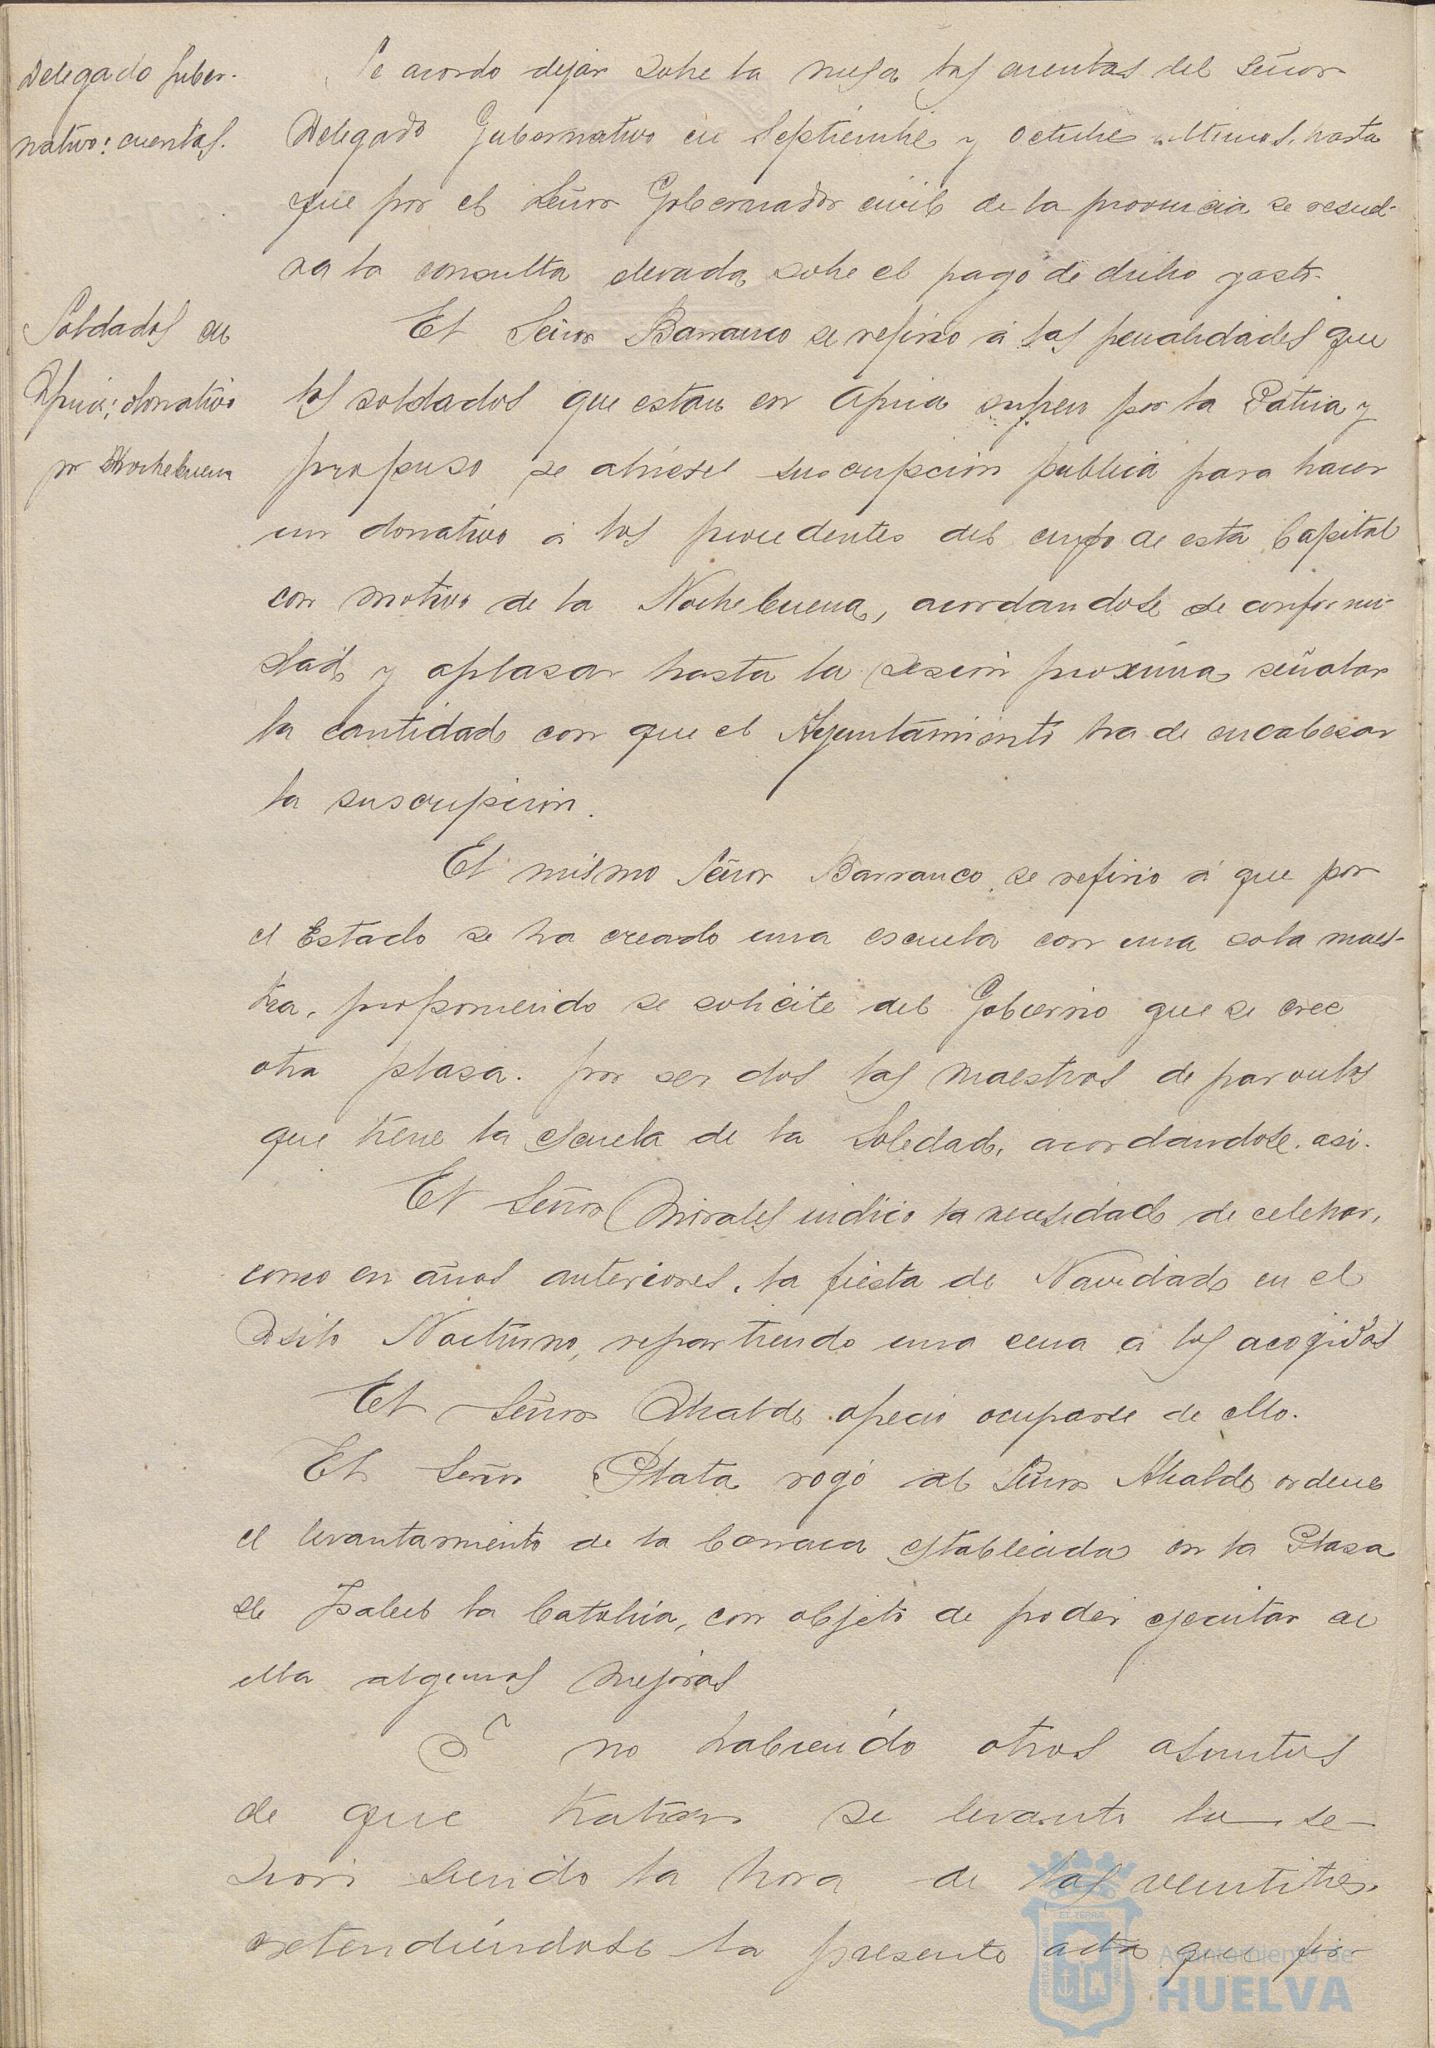 Delegado Guber-
nativo: cuentas.
Se acordo dejar sobre la mesa las cuentas del Señor
Delegado Gubernativo en Septiembre y Octubre ultimos, hasta
que por el Señor Gobernador civil de la provincia se resuel-
va la consulta elevada sobre el pago de dicho gasto.
Soldados en
Africa; donativo
por Nochebuena
El Señor Barranco se refirio á las penalidades que
los soldados que estan en Africa sufren por la Patria y
propuso se abriese suscripcion publica para hacer
un donativo á los procedentes del cupo de esta Capital
con motivo de la Nochebuena, acordandose de conformi-
dad y aplasar hasta la sesion proxima señalar
la cantidad con que el Ayuntamiento ha de encabesar
la suscripcion.
El mismo Señor Barranco se refirio á que por
el Estado se ha creado una escuela con una sola maes-
tra, proponiendo se solicite del Gobierno que se cree
otra plasa. por ser dos las maestras de parvulos
que tiene la escuela de la Soledad, acordandose asi.
El Señor Morales indico la necesidad de celebrar,
como en años anteriores, la fiesta de Navidad en el
Asilo Nocturno, repartiendo una cena á los acogidos
El Señor Alcalde ofrecio ocuparse de ello.
El Señor Plata rogó al Señor Alcalde ordene
el levantamiento de la barraca establecida en la Plasa
de Isabel la Catolica, con objeto de poder ejecutar en
ella algunas mejoras
Y no habiendo otros asuntos
de que tratar se levanto la se-
sion siendo la hora de las veintitres
extendiéndose la presente acta que fir-
Ayuntamiento de
HUELVA